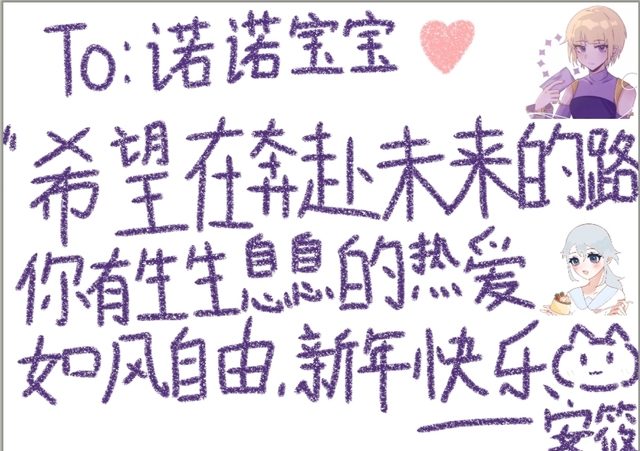 To:诺诺宝宝
"希望在奔赴未来的路
你有生生息息的热爱
如风自由,新年快乐、
——安筱